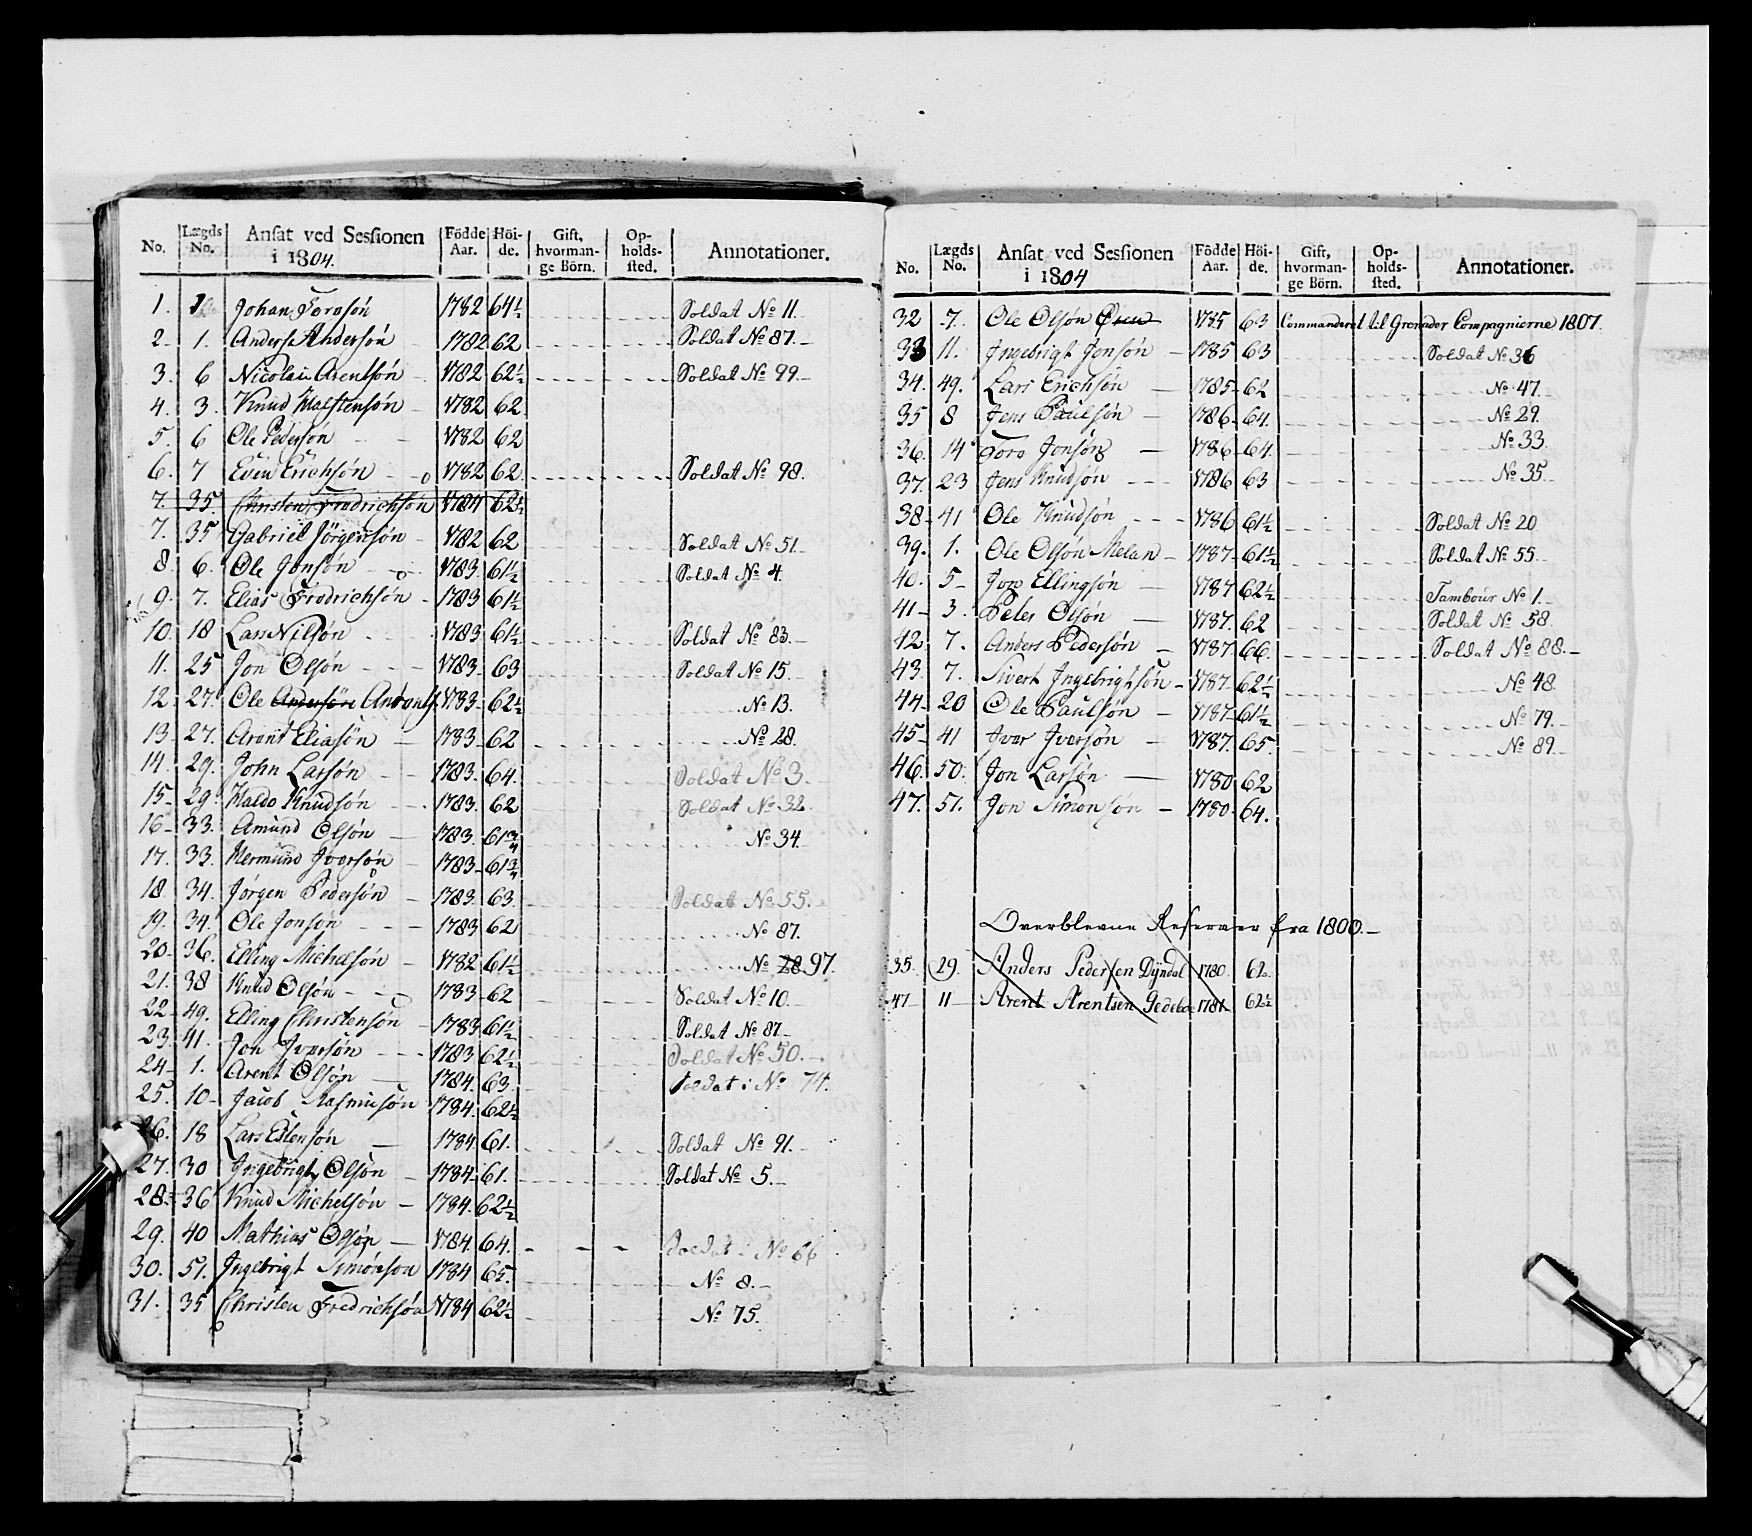 No. Lægds No. Ansat ved Sessionen i 1804. Födde Aar. Höide. Gift, hvormange Börn. Opholdssted. Annotationer.
1. Johan Torosön 1782 64½ Soldat No 11.
2. 1. Anders Andersön 1782 62 Soldat No 87.
3. 6 Nicolai Arentsön 1782 62½ Soldat No 99.
4. 3. Knud Halstensön 1782 62
5. 6 Ole Pedersön 1782 62
6. 7 Even Erichsön 1782 62. Soldat No 98.
7. 35. Christen Fredrichsön 1784 62½
7. 35 Gabriel Jörgensön 1782 62 Soldat No 51.
8. 6. Ole Jonsön 1783. 61½ Soldat No 4.
9. 7. Elias Fredrichsön 1783 61½
10. 18 Lars Nilsön 1783. 61½ Soldat No 83.
11. 25 Jon Olsön 1783. 63 Soldat No 15.
12. 27. Ole Andersön 1783. 62½ No 13.
13. 27. Arent Eliasön 1783. 62 No 28.
14. 29. John Larsön 1783. 64. Soldat No 3.
15. 29. Haldo Knudsön 1783. 62 Soldat No 32.
16. 33. Amund Olsön 1783. 61¾ No 34.
17. 33. Hermund Iversön 1783. 61¾
18. 34. Jörgen Pedersön 1783. 63. Soldat No 55.
19. 34. Ole Jonsön 1783 62 No 87.
20. 36. Elling Michelsön 1782 61½ No 28 97.
21. 38 Knud Olsön 1783 62 Soldat No 10.
22. 49. Elling Christensön 1783 61½ Soldat No 87.
23. 41. Jon Iversön 1783 62½ Soldat No 50.
24. 1. Arent Olsön 1784. 63 Soldat No 74.
25. 10. Jacob Rasmusön 1784. 62½
26. 18 Lars Estensön 1784 61. Soldat No 91.
27. 30 Ingebrigt Olsön 1784 61. Soldat No 5.
28. 36 Knud Michelsön 1784. 62½
29. 40 Mathias Olsön 1784. 64. Soldat No 66
30. 51. Ingebrigt Simonson 1784 65. No 8.
31. 35 Christen Fredrichsön 1784 62½ No 75.
No. Lægds No. Ansat ved Sessionen i 1804 Födde Aar. Höide. Gift, hvormange Börn. Opholdssted. Annotationer.
32 7. Ole Olsön Øien 1785 63 Commanderet til Grenader Compagnierne 1807.
33 11. Ingebrigt Jonsön 1785 63 Soldat No 36
34. 49. Lars Erichsön 1785 62 No 47.
35 8 Jens Paulsön 1786 64. No 29.
36. 14 Toro Jonsön 1786 64. No 33.
37. 23 Jens Knudsön 1786 63 No 35.
38. 41 Ole Knudsön 1786 61½ Soldat No 20
39. 1. Ole Olsön Melan 1787 61½ Soldat No 55.
40. 5 Jon Ellingsön 1787 62½ Tambour No 1.
41 3. Peter Olsön 1787. 62 Soldat No 58.
42 7. Anders Pedersön 1787 66. Soldat No 88.
43. 7. Sivert Ingebrigtsön 1787 62½ No 48.
44 20 Ole Paulsön 1787 61½ No 79.
45 41 Iver Iversön 1787. 65. No 89.
46. 50. Jon Larsön 1780 62
47. 51. Jon Simonsön 1780 64.
Overblevne Reserver fra 1800.
35. 29. Anders Pedersen Dyndal 1780. 62.
47 11 Arent Arentsen 1781 62½